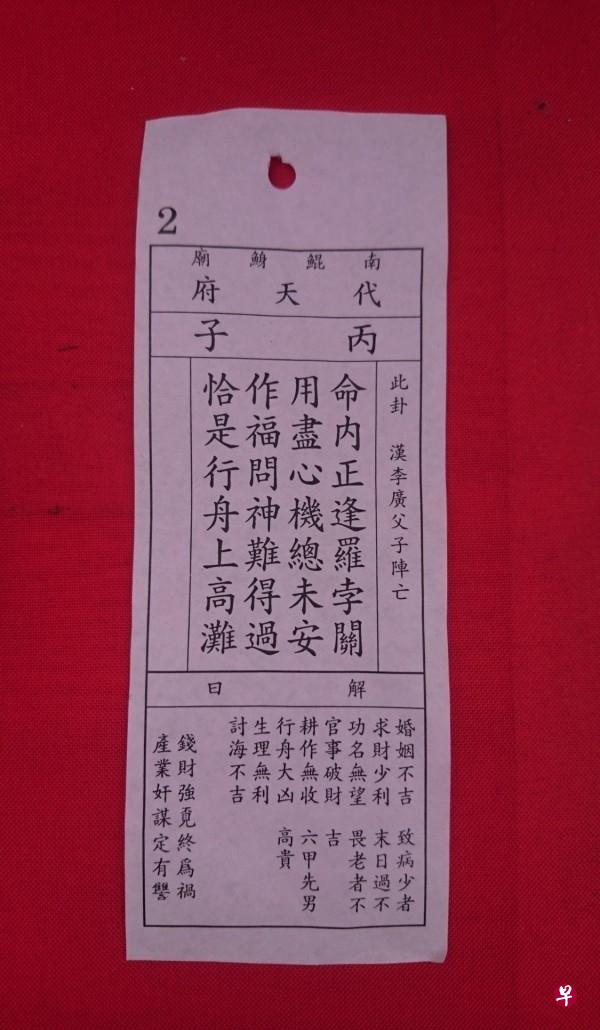 2
南鯤鯓廟
代天府
丙子
此卦 漢李廣父子陣亡
命內正逢羅孛關
用盡心機總未安
作福問神難得過
恰是行舟上高灘
解曰
婚姻不吉 致病少者
求財少利 末日過不
功名無望 畏老者不
官事破財 吉
耕作無收 六甲先男
行舟大凶 高貴
生理無利
討海不吉
錢財強覓終爲禍
產業奸謀定有讐
早